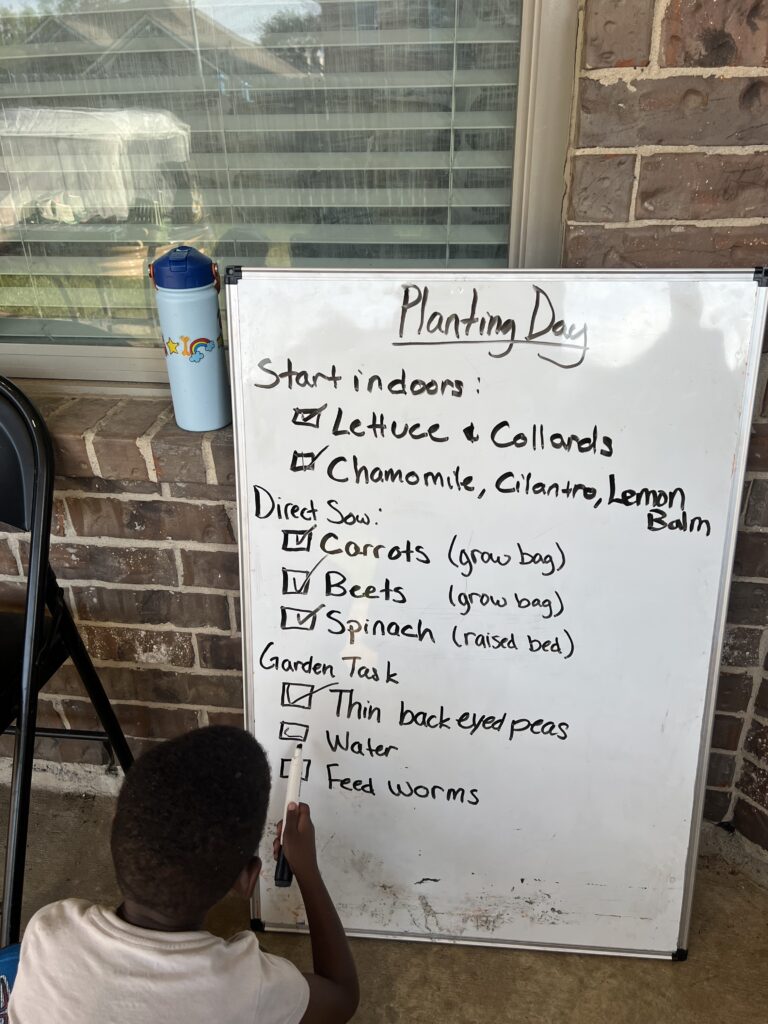 Planting Day
Start indoors:
Lettuce & Collards
Chamomile, Cilantro, Lemon
Balm
Direct Sow:
Carrots (grow bag)
Beets (grow bag)
Spinach (raised bed)
Garden Task
Thin back eyed peas
Water
Feed worms